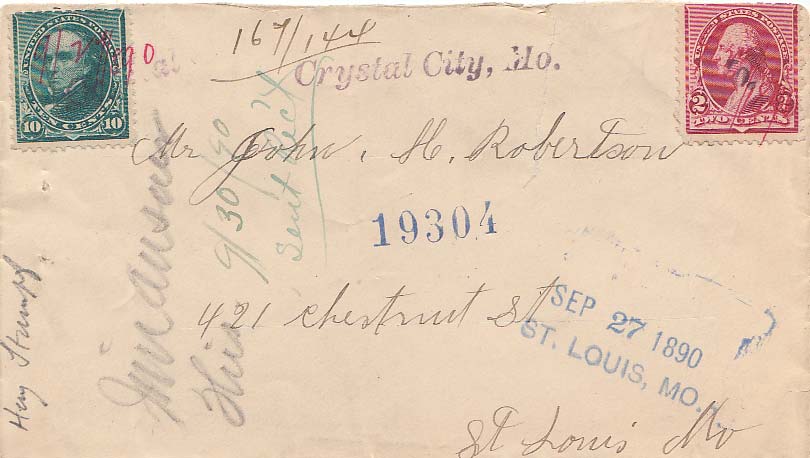 UNITED STATES POSTAGE
10 TEN CENTS 10
167/144
Crystal City, Mo.
UNITED STATES POSTAGE
2 TWO CENTS 2
Mr John. H. Robertson
19304
421 Chestnut St
SEP 27 1890
ST. LOUIS, MO.
St Louis Mo
9/30/90
Sent
answer
this
Hry Stumpf